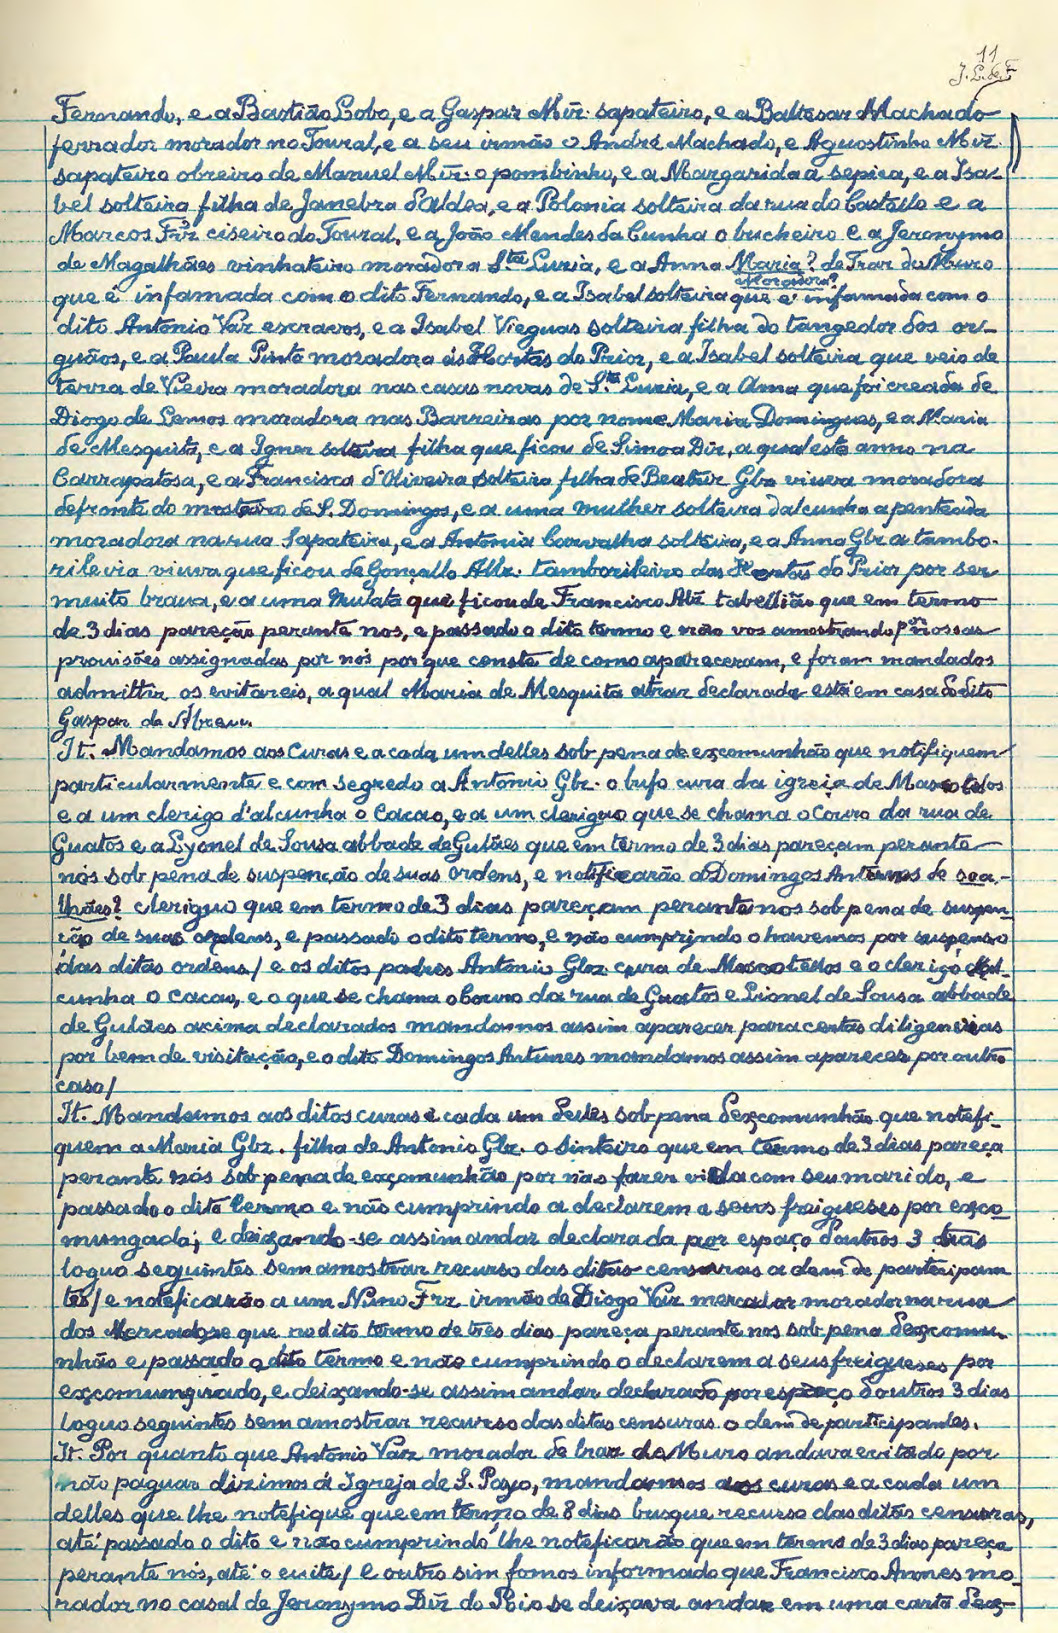 11
J. L. de F.
Fernando, e a Bastião Lobo, e a Gaspar Miz. sapateiro, e a Baltesar Machado
ferrador morador no Toural, e a seu irmão o André Machado, e Aguostinho Miz.
sapateiro obreiro de Manuel Miz. o pombinho, e a Margarida a sepica, e a Isa-
bel solteira filha de Janebra d'Aldea, e a Polonia solteira da rua do Castello e a
Marcos Frz ciseiro do Toural, e a João Mendes da Cunha o bucheiro e a Jeronymo
de Magalhães vinhateiro morador a Sta Luzia, e a Anna Maria? de Traz do Muro
Moradora?
que é infamada com o dito Fernando, e a Isabel solteira que é infamada com o
dito Antonio Vaz escravos, e a Isabel Vieguas solteira filha do tangedor dos or-
guãos, e a Paula Pinta moradora ás Hortas do Prior, e a Isabel solteira que veio de
terra de Vieira moradora nas casas novas de Sta Luzia, e a Anna que foi creada de
Diogo de Lemos moradora nas Barreiras por nome Maria Domingues, e a Maria
de Mesquita, e a Ignez solteira filha que ficou de Simoa Diz, a qual esta anno na
Carrapatosa, e a Francisca d'Oliveira solteira filha de Beatriz Glz viuva moradora
defronte do mosteiro de S. Domingos, e a uma mulher solteira dalcunha a penteada
moradora na rua Sapateira, e a Antonia Carvalha solteira, e a Anna Glz a tambo-
rileira viuva que ficou de Gonçallo Alz. tamborileiro das Hortas do Prior por ser
muito brava, e a uma Mulata que ficou de Francisco Alz tabellião que em termo
de 3 dias pareção perante nos, e passado o dito termo e não vos amostrando por nossas
provisões assignadas por nós por que conste de como apareceram, e foram mandados
admittir os evitareis, a qual Maria de Mesquita atraz declarada está em casa do dito
Gaspar de Abreu.
It. Mandamos aos Curas e a cada um delles sob pena de exçomunhão que notifiquem
particularmente e com segredo a Antonio Glz. o bufo cura da igreja de Mascotelos
e a um clerigo d'alcunha o Cacao, e a um cleriguo que se chama o Couro da rua de
Guatos e a Lyonel de Sousa abbade de Gulães que em termo de 3 dias pareçam perante
nós sob pena de suspenção de suas ordens, e notificarão a Domingos Antunes de
cleriguo que em termo de 3 dias pareçam perante nos sob pena de suspen-
ção de suas ordens, e passado o dito termo, e não cumprindo o havemos por suspenso
das ditas ordens / e os ditos padres Antonio Gloz cura de Mascotellos e o clerigo dal-
cunha o Cacao, e o que se chama o Couro da rua de Guatos e Lionel de Sousa abbade
de Gulães acima declarados mandamos assim aparecer para certas diligencias
por bem de visitação, e o dito Domingos Antunes mandamos assim aparecer por outro
caso /
It. Mandamos aos ditos curas e cada um delles sob pena d'exçomunhão que notefi-
quem a Maria Glz. filha de Antonio Glz. o Sinteiro que em termo de 3 dias pareça
perante nós sob pena de exçomunhão por não fazer vida com seu marido, e
passado o dito termo e não cumprindo a declarem a seus freigueses por exço-
mungada, e deixando-se assim andar declarada por espaço d'outros 3 dias
loguo seguintes sem amostrar recurso das ditas censuras a dem de participan
tes / e noteficarão a um Nuno Frz irmão de Diogo Vaz mercador morador na rua
dos Mercadores que no dito termo de tres dias pareça perante nos sob pena d'exçomu-
nhão e passado o dito termo e não cumprindo o declarem a seus freigueses por
exçomunguado, e deixando-se assim andar declarado por espaço d'outros 3 dias
loguo seguintes sem amostrar recurso das ditas censuras. o dem de participantes.
It. Por quanto que Antonio Vaz morador de traz do Muro andava evitado por
não paguar dizimos á Igreja de S. Payo, mandamos aos curas e a cada um
delles que lhe notefique que em termo de 8 dias busque recurso das ditas censuras,
até passado o dito e não cumprindo lhe noteficarão que em termo de 3 dias pareça
perante nós, até o evite / e outro sim fomos informado que Francisco Annes mo-
rador no casal de Jeronymo Diz do Rio se deixava andar em uma carta d'ex-